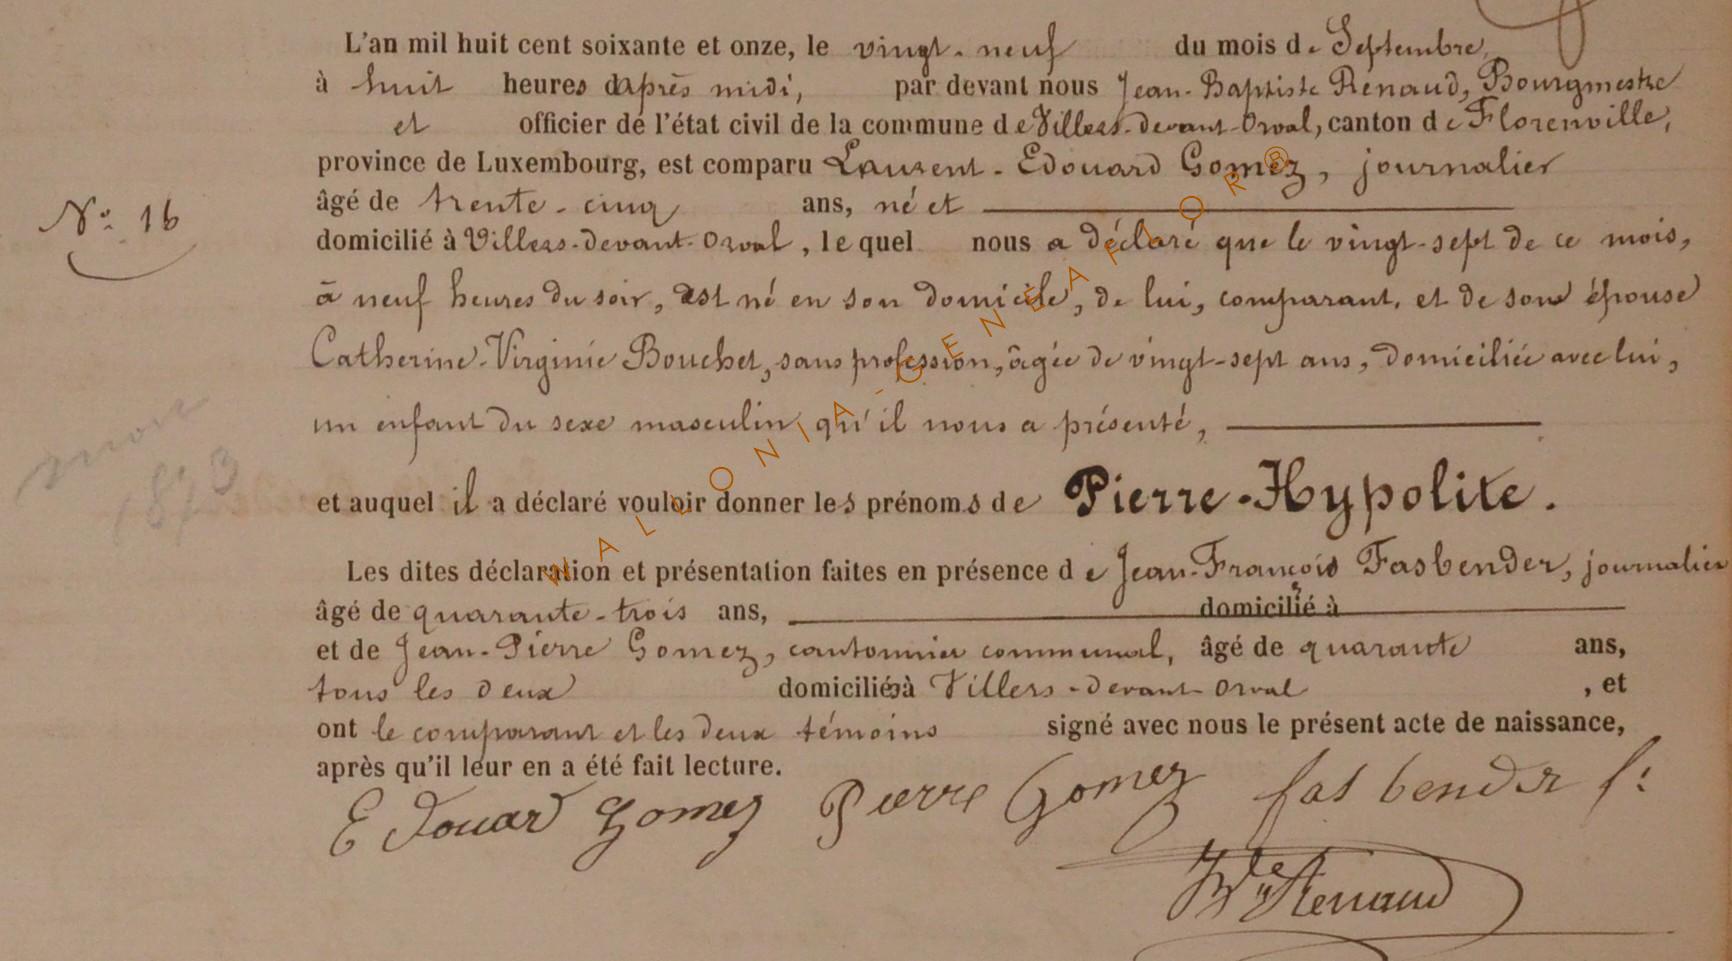 L'an mil huit cent soixante et onze, le vingt-neuf du mois de Septembre,
à huit heures d'après midi, par devant nous Jean-Baptiste Renaud, Bourgmestre
et officier de l'état civil de la commune de Villers-devant-Orval, canton de Florenville,
province de Luxembourg, est comparu Laurent-Edouard Gomez, journalier
âgé de trente-cinq ans, né et
N° 16
domicilié à Villers-devant-Orval, lequel nous a déclaré que le vingt-sept de ce mois,
à neuf heures du soir, est né en son domicile, de lui, comparant, et de son épouse
Catherine-Virginie Bouchet, sans profession, âgée de vingt-sept ans, domiciliée avec lui,
un enfant du sexe masculin qu'il nous a présenté,
mort
1873
et auquel il a déclaré vouloir donner les prénoms de Pierre-Hypolite.
Les dites déclaration et présentation faites en présence de Jean-François Fasbender, journalier
âgé de quarante-trois ans, domicilié à
et de Jean-Pierre Gomez, cantonnier communal, âgé de quarante ans,
tous les deux domiciliés à Villers-devant-Orval, et
ont le comparant et les deux témoins signé avec nous le présent acte de naissance,
après qu'il leur en a été fait lecture.
Edouard Gomez Pierre Gomez fasbender
Renaud
WALLONIA-GENEAFLOR®